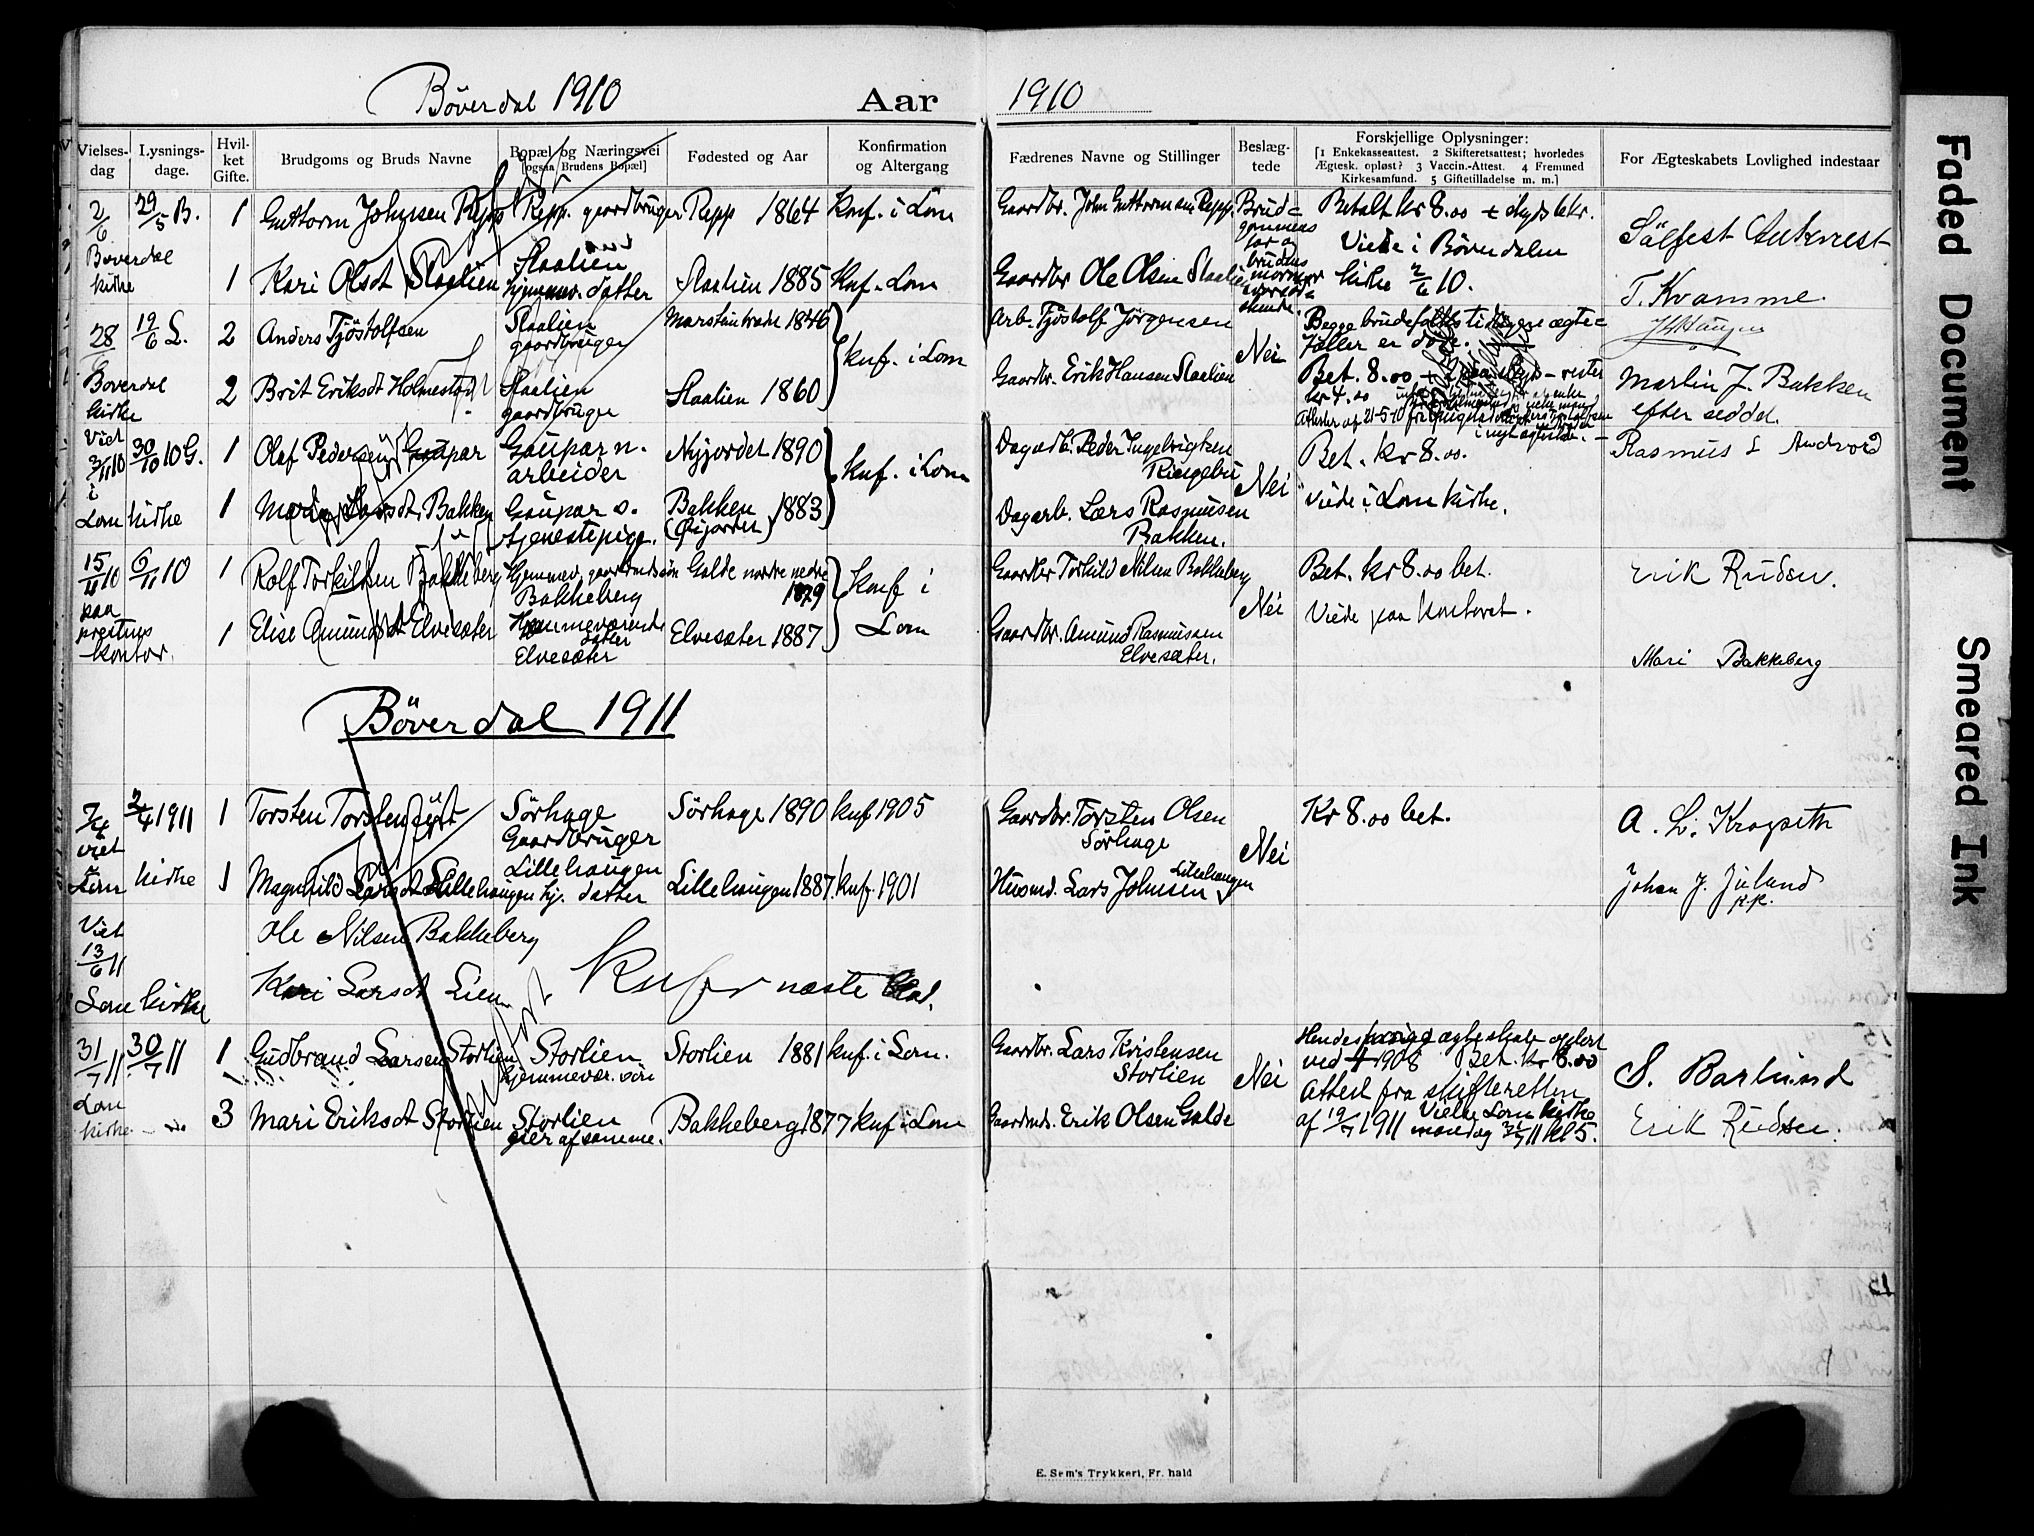 Böverdal 1910 Aar 1910
Vielses-dag
Lysnings-dage.
Hvilket Gifte.
Brudgoms og Bruds Navne
Bopæl og Næringsvei
[ogsaa Brudens Bopæl]
Fødested og Aar
Konfirmation og Altergang
Fædrenes Navne og Stillinger
Beslæg-tede
Forskjellige Oplysninger:
[1 Enkekasseattest. 2 Skifteretsattest; hvorledes
Ægtesk. opløst? 3 Vaccin.-Attest. 4 Fremmed
Kirkesamfund. 5 Giftetilladelse m. m.]
For Ægteskabets Lovlighed indestaar
2/6 29/5 B. 1 Guttorm Johnsen Repp Repp. gaardbruger Repp 1864 Konf. i Lom Gaardbr. John Guttormsen Repp. Brud= Betalt kr 8.00
gommens
Viede i Böverdalen
Sölfest Aukrust
Böverdal
kirke
1 Kari Olsdt Slaalien Slaalien
hjemmev. datter Slaalien 1885 Knf. Lom Gaardbr Ole Olsen Slaalien kirke 2/6 10.
T. Kvamme.
28/6 19/6 L. 2 Anders Tjöstolfsen Slaalien
gaardbruger 1846 Arb. Tjöstolf Jörgensen Nei Begge brudefolks tidligere ægte=
fæller er döde.
knf. i Lom
Böverdal
kirke
2 Brit Eriksdt Holmestad Slaalien
gaardbruger Slaalien 1860 Gaardbr. Erik Hansen Slaalien Bet. 8.00
kr 4.00
Martin J. Bakken
efter seddel.
Viet
3/11 10
i
Lom kirke
30/10 10 G. 1 Olaf Pedersen Gaupar Gaupar n.
arbeider Nyjordet 1890 knf. i Lom Dagarb. Peder Ingebrigtsen
Ringebu Nei Bet. kr 8.00. Rasmus L Andvord
1 Bakken Gaupar s.
tjenestepige. Bakken
1883 Dagarb. Lars Rasmussen
Bakken. Viede i Lom kirke.
15/11 10
paa
prestens
kontor.
6/11 10 1 Rolf Torkildsen Bakkeberg Hjemmev. gaardmandssön
Bakkeberg Galde nordre nedre
1879 Konf i
Lom Gaardbr Torkild Nilsen Bakkeberg Nei Bet. kr 8.00 bet. Erik Rudsen.
1 Elise Amundsdt Elvesæter Hjemmeværende
datter
Elvesæter Elvesæter 1887 Gaardbr. Amund Rasmussen
Elvesæter. Viede paa kontoret. Mari Bakkeberg
Böverdal 1911
7/4
viet
Lom kirke
2/4 1911 1 Torsten Torstensen Sörhage
Gaardbruger Sörhage 1890 knf 1905 Gaardbr. Torsten Olsen
Sörhage Nei Kr 8.00 bet.
1 Magnhild Larsdt Lillehaugen Lillehaugen
hj. datter Lillehaugen 1887. knf. 1901 Husmd. Lars Johnsen
Lillehaugen Johan J.
Viet
13/6 11
Lom kirke
Ole Nilsen Bakkeberg
Kari Larsdt Lien næste
31/7 11
Lom
kirke
30/7 11 1 Gudbrand Larsen Storlien Storlien
hjemmevær. sön Storlien 1881 knf. i Lom. Gaardbr. Lars Kristensen
Storlien Nei Hendes forrige ægteskab oplöst
ved 1908 Bet. kr 8.00
Attest fra skifteretten
S. Barlund
3 Mari Eriksdt Storlien Storlien
eier af samme. Bakkeberg 1877 knf i Lom Gaardmd. Erik Olsen Galde af 19/7 1911 Vielse Lom kirke
mandag 31/7 11 kl 5. Erik Rudsen.
E. Sem's Trykkeri, Fr. hald
Faded Document
Smeared Ink